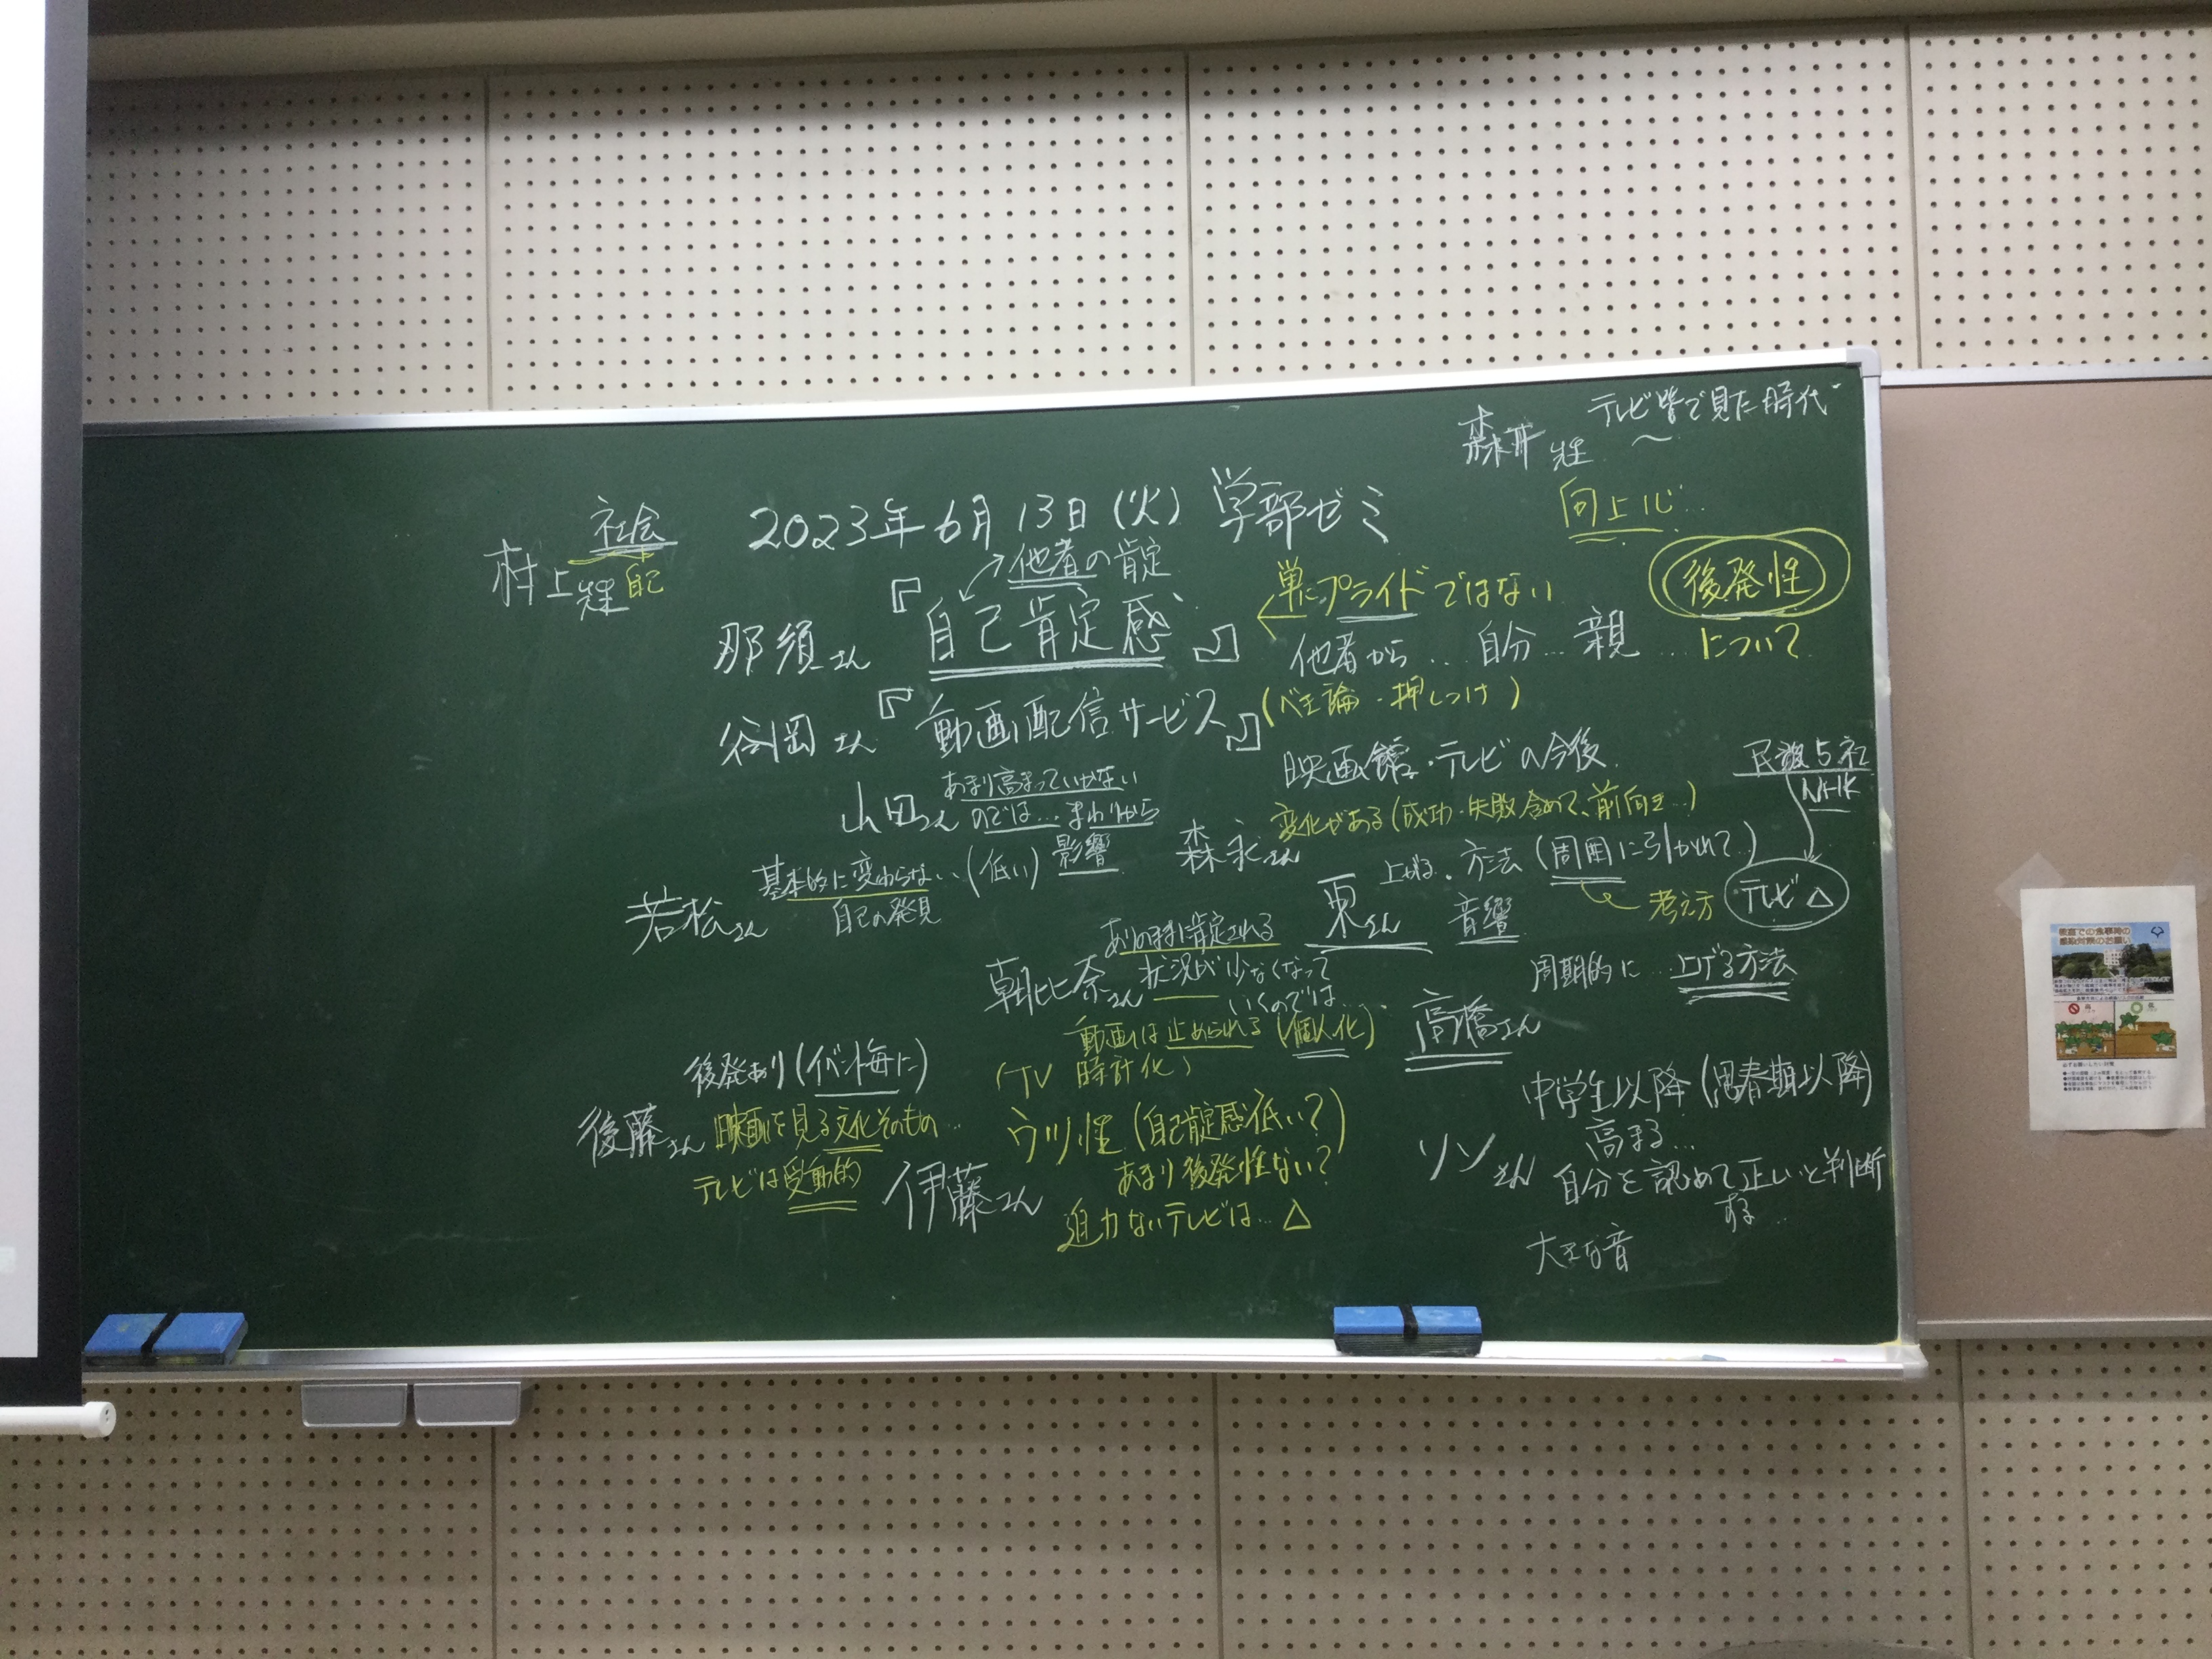 テレビ皆で見た時代
森井 先生
向上心…
社会
2023年6月13日(火) 学部ゼミ
村上先生 自己
他者の肯定
後発性
について
単にプライドではない
那須さん 『自己肯定感』
他者から…自分…親…
(べき論・押しつけ)
谷岡さん 『動画配信サービス』
映画館・テレビの今後
民放5社
NHK
テレビ△
山田さん あまり高まっていかない
のでは…まわりから
影響
森永さん 変化がある(成功・失敗含めて、前向き…)
若松さん 基本的に変わらない(低い)
自己の発見
上がる。方法(周囲に引かれて)
考え方
東さん 音響
ありのままに肯定される
朝比奈さん 状況が少なくなって
いくのでは…
周期的に…上げる方法
高橋さん
動画は止められる(個人化)
(TV 時計化)
後発あり(イベント毎に)
後藤さん 映画を見る文化そのもの…
テレビは受動的
ウツ性(自己肯定感低い?)
伊藤さん あまり後発性ない?
迫力ないテレビは…△
中学生以降(思春期以降)
高まる…
ソンさん 自分を認めて正しいと判断
する…
大きな音